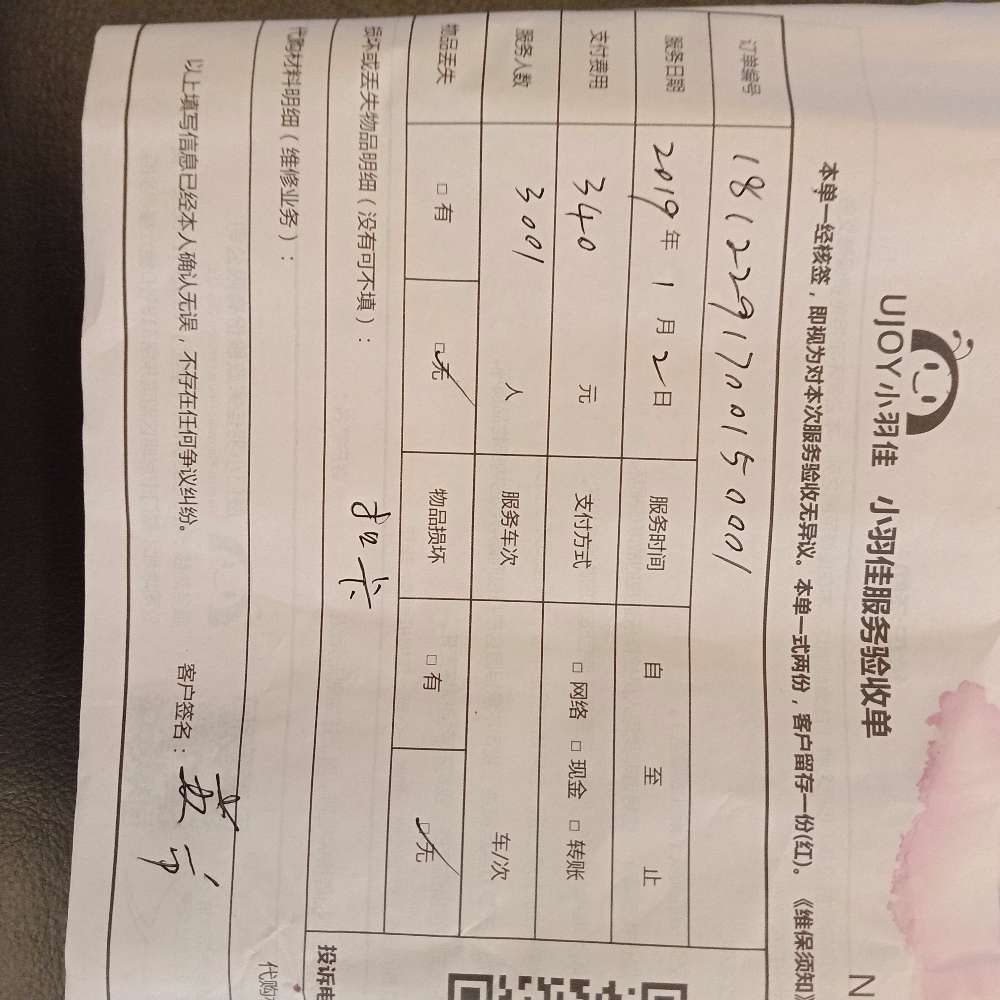 UJOY小羽佳 小羽佳服务验收单
N
本单一经核签，即视为对本次服务验收无异议。本单一式两份，客户留存一份(红)。《维保须知》
订单编号 1812291700150001
服务日期 2019年1月2日 服务时间 自 至 止
支付费用 340 元 支付方式 □ 网络 □ 现金 □ 转账
服务人数 3001 人 服务车次 车/次
物品丢失 □ 有 □ 无 物品损坏 □ 有 □ 无
损坏或丢失物品明细（没有可不填）：
投诉电
代购材料明细（维修业务）：
代购
以上填写信息已经本人确认无误，不存在任何争议纠纷。 客户签名：